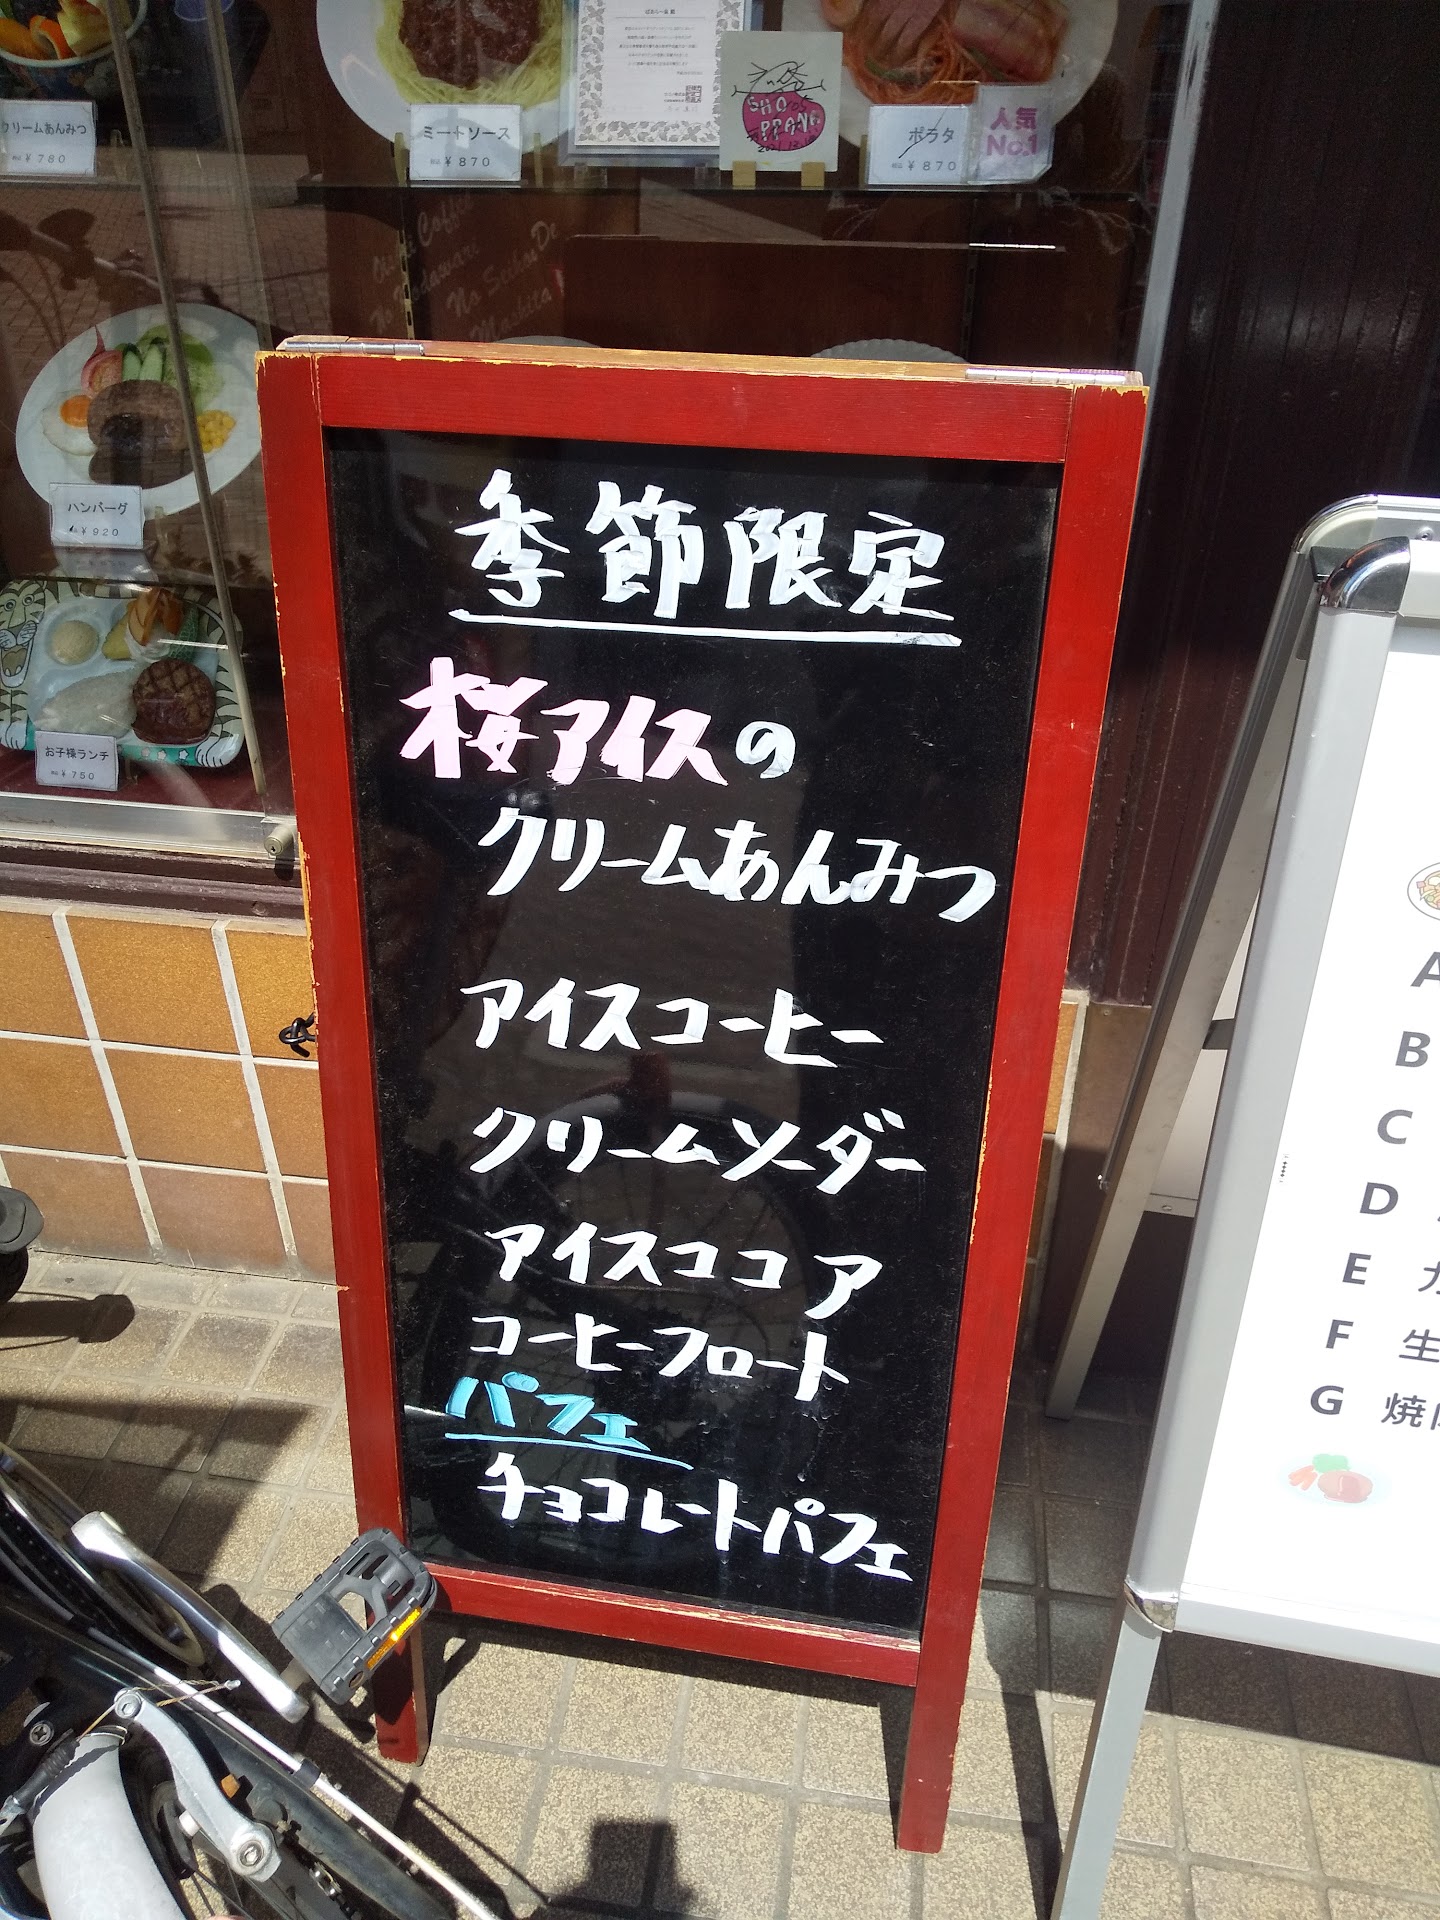 クリームあんみつ
¥780
ミートソース
税込 ¥870
SHO
PPANG
ポラタ
税込 ¥870
人気
No.1
Coffee
No Seihou De
Mashita
ハンバーグ
¥920
お子様ランチ
税込 ¥750
季節限定
桜アイスの
クリームあんみつ
アイスコーヒー
クリームソーダー
アイスココア
コーヒーフロート
パフェ
チョコレートパフェ
A
B
C
D
E カ
F 生
G 焼